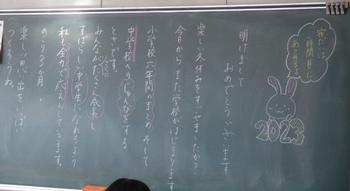 明けまして
おめでとうございます
楽しい冬休みをすごせましたか?
今日からまた学校がはじまります
小学校六年間のまとめ、そして
中学校へのじゅんびをする
ときです。
みんながたのしく成長し
すばらしい中学生になれるよう
私も全力で応えんしていきます。
のこり3か月、
楽しい思い出をいっぱい
つくろうね。
2023